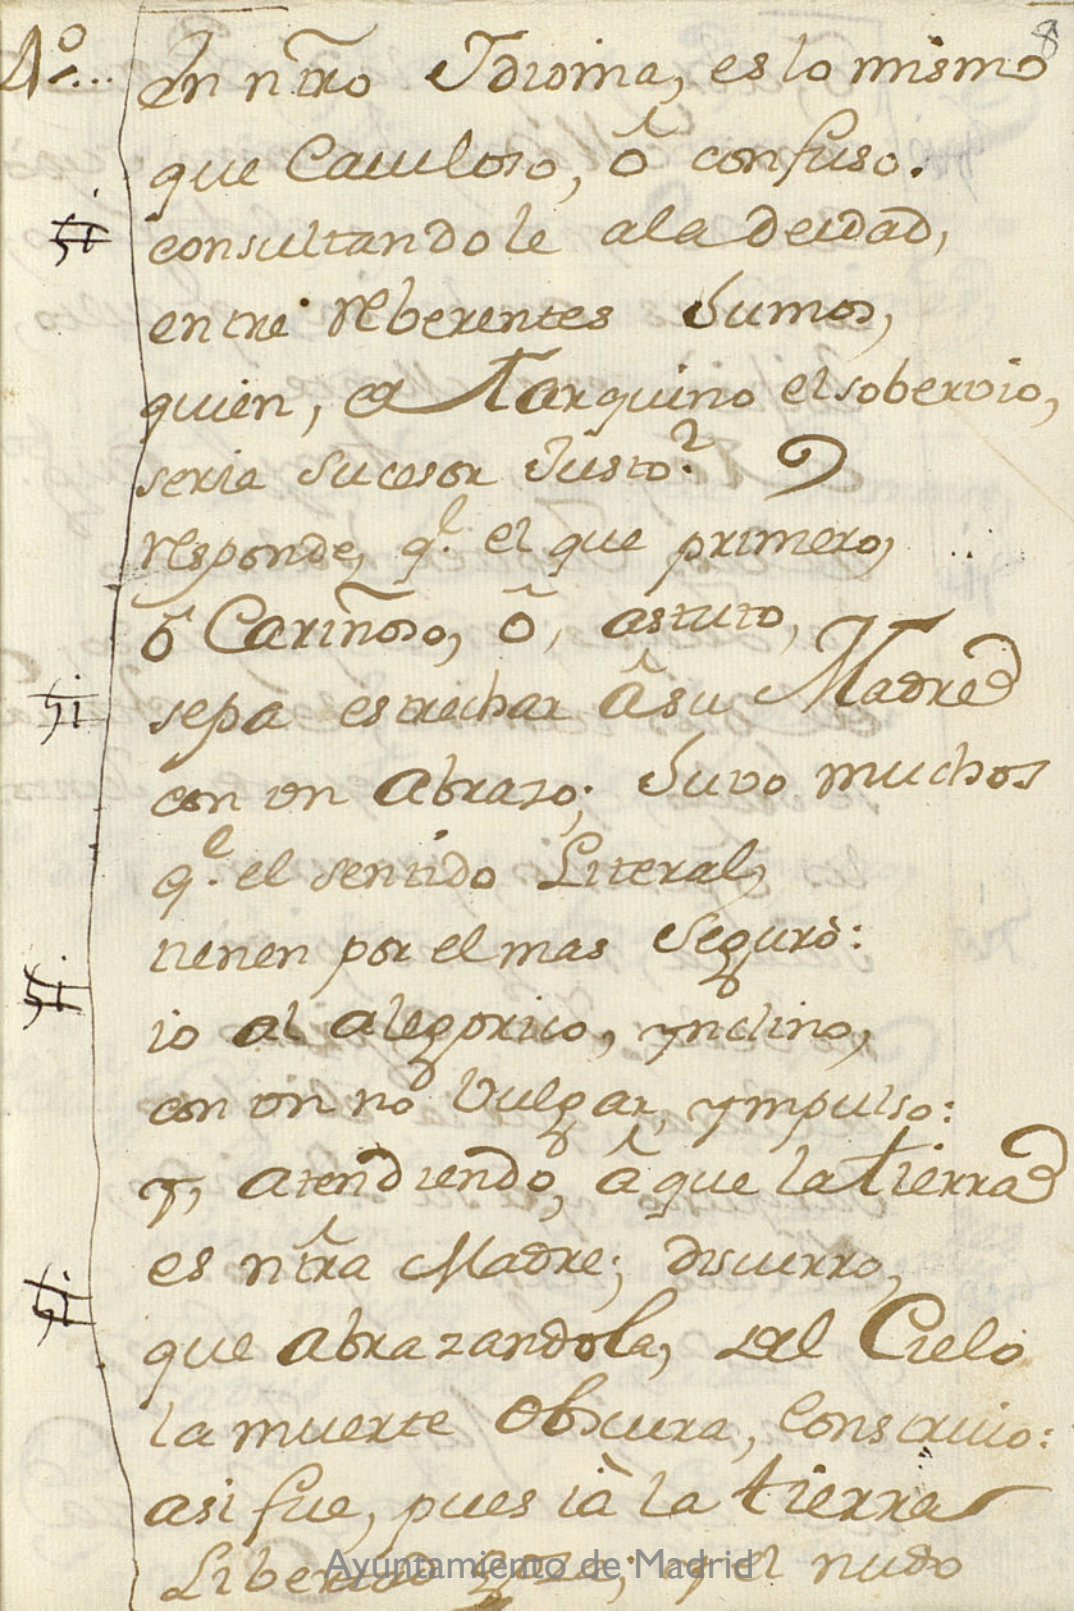 8
4º... En nr̃o Idioma, es lo mismo
que Cauiloso, ô confuso.
si consultandole ala deidad,
entre reberentes Sumos,
quien, a Tarquino el sobervio,
seria Sucesor Justo?
responde, q.^e el que primero,
ô Cariñoso, ô, astuto,
si sepa estrechar â su Madre
con vn abrazo; Suvo muchos
q.^e el sentido Literal,
tienen por el mas Seguro:
si io al alegorico, ynclino,
con vn no Vulgar, ympulso:
y, atendiendo, â que la tierra
es nr̃a Madre; discurro,
si que abrazandola, del Cielo
la muerte Obscura, Construio:
asi fue, pues ià la tierra
Libertad goza; y el nudo
Ayuntamiento de Madrid